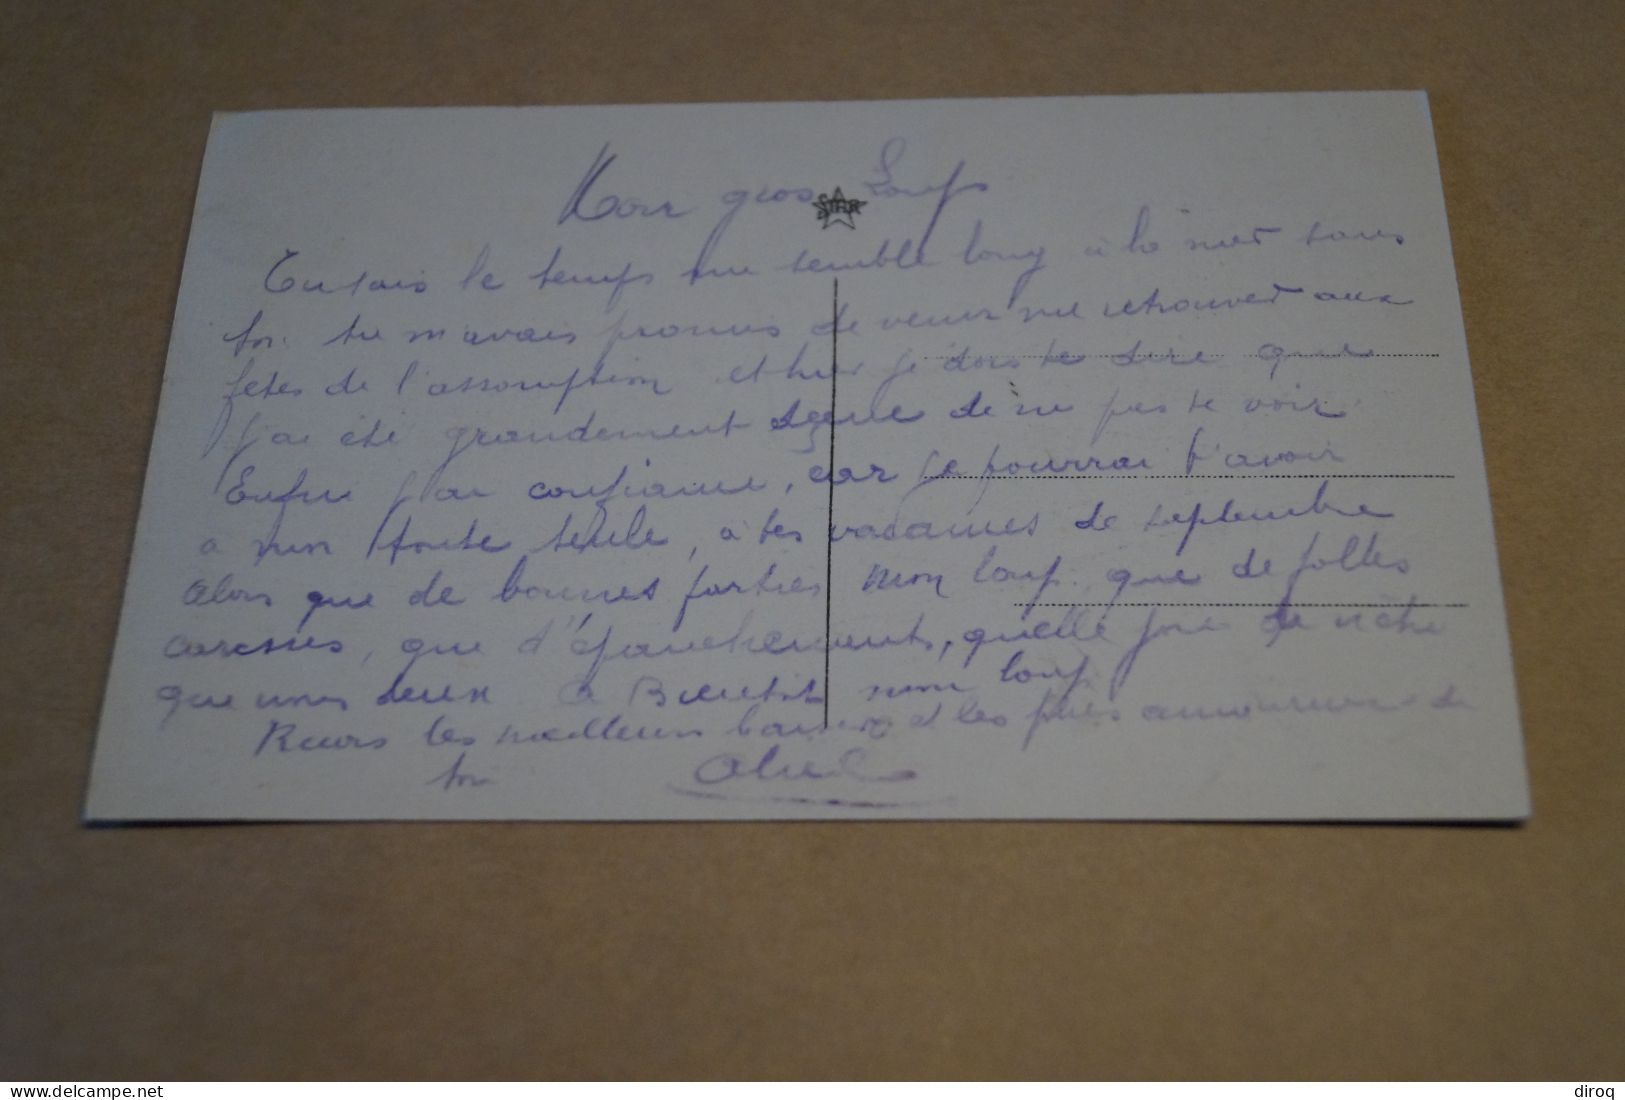 Mon gros Loup
STAR
Tu sais le temps me semble long à la mer sans
toi. tu m'avais promis de venir me retrouver aux
fêtes de l'assomption et hier je dois te dire que
j'ai été grandement deçue de ne pas te voir
Enfin j'ai confiance, car je pourrai t'avoir
a moi toute seule, à tes vacances de septembre
alors que de bonnes parties mon loup, que de folles
caresses, que d'épanchements, quelle joie de n'être
que nous deux a Bientôt mon loup
Recois les meilleurs baisers et les plus amoureux de
ton
delcampe.net
diroq